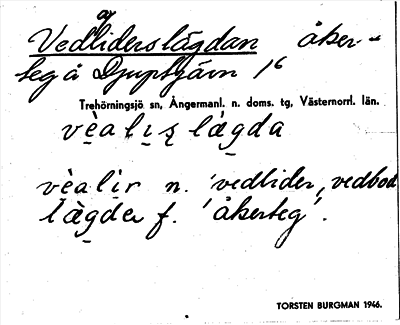 Vedliderslägdan åker-
teg å Djuptjärn 1⁶
Trehörningsjö sn, Ångermanl. n. doms. tg, Västernorrl. län.
vèalı̣ṣ làgda
vèalır n. 'vedlider, vedbod'
làgder f. 'åkerteg'.
TORSTEN BURGMAN 1946.